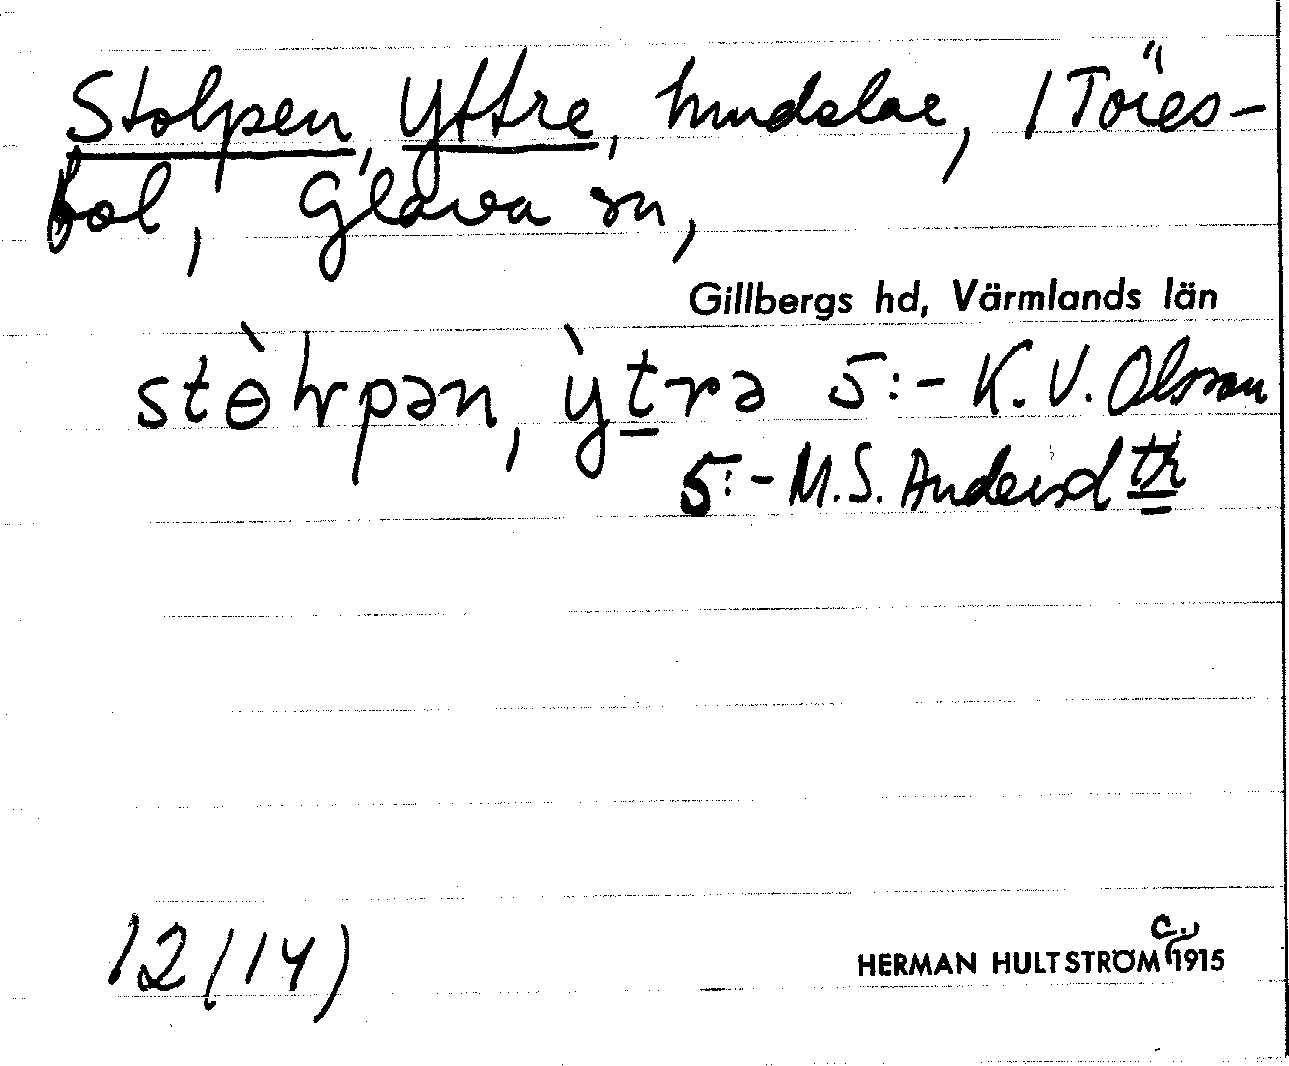 Stolpen, Yttre, hmdelar, 1 Töres-
bol, Glava sn,
Gillbergs hd, Värmlands län
stɵ̀lrpən, ỳtrə 5:- K. V. Olsson
5:- M.S. Andersd th
12(14)
HERMAN HULTSTRÖM c. 1915